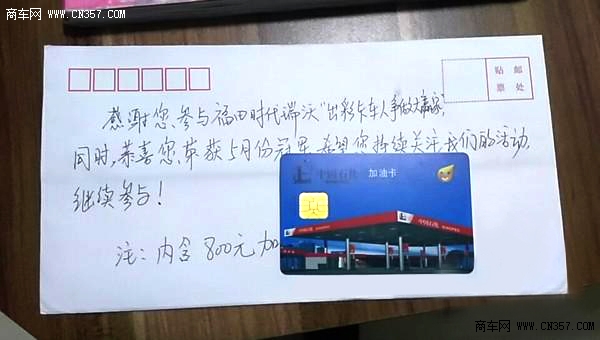 商车网 www.CN357.com
贴 邮
票 处
感谢您参与福田时代瑞沃“出彩卡车人争做大赢家”
同时,恭喜您荣获5月份冠军,希望您持续关注我们的活动,
继续参与!
中国石化 加油卡
中国石化
注:内含800元加
商车网 www.CN357.com